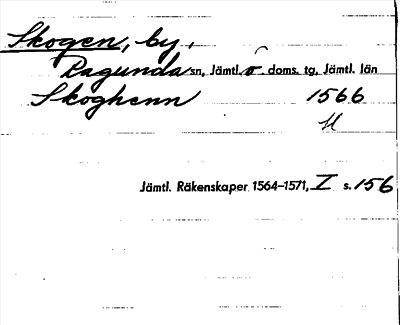 Skogen, by,
Ragunda sn, Jämtl. ö. doms. tg, Jämtl. län
Skoghenn 1566
Jämtl. Räkenskaper 1564-1571, I s. 156